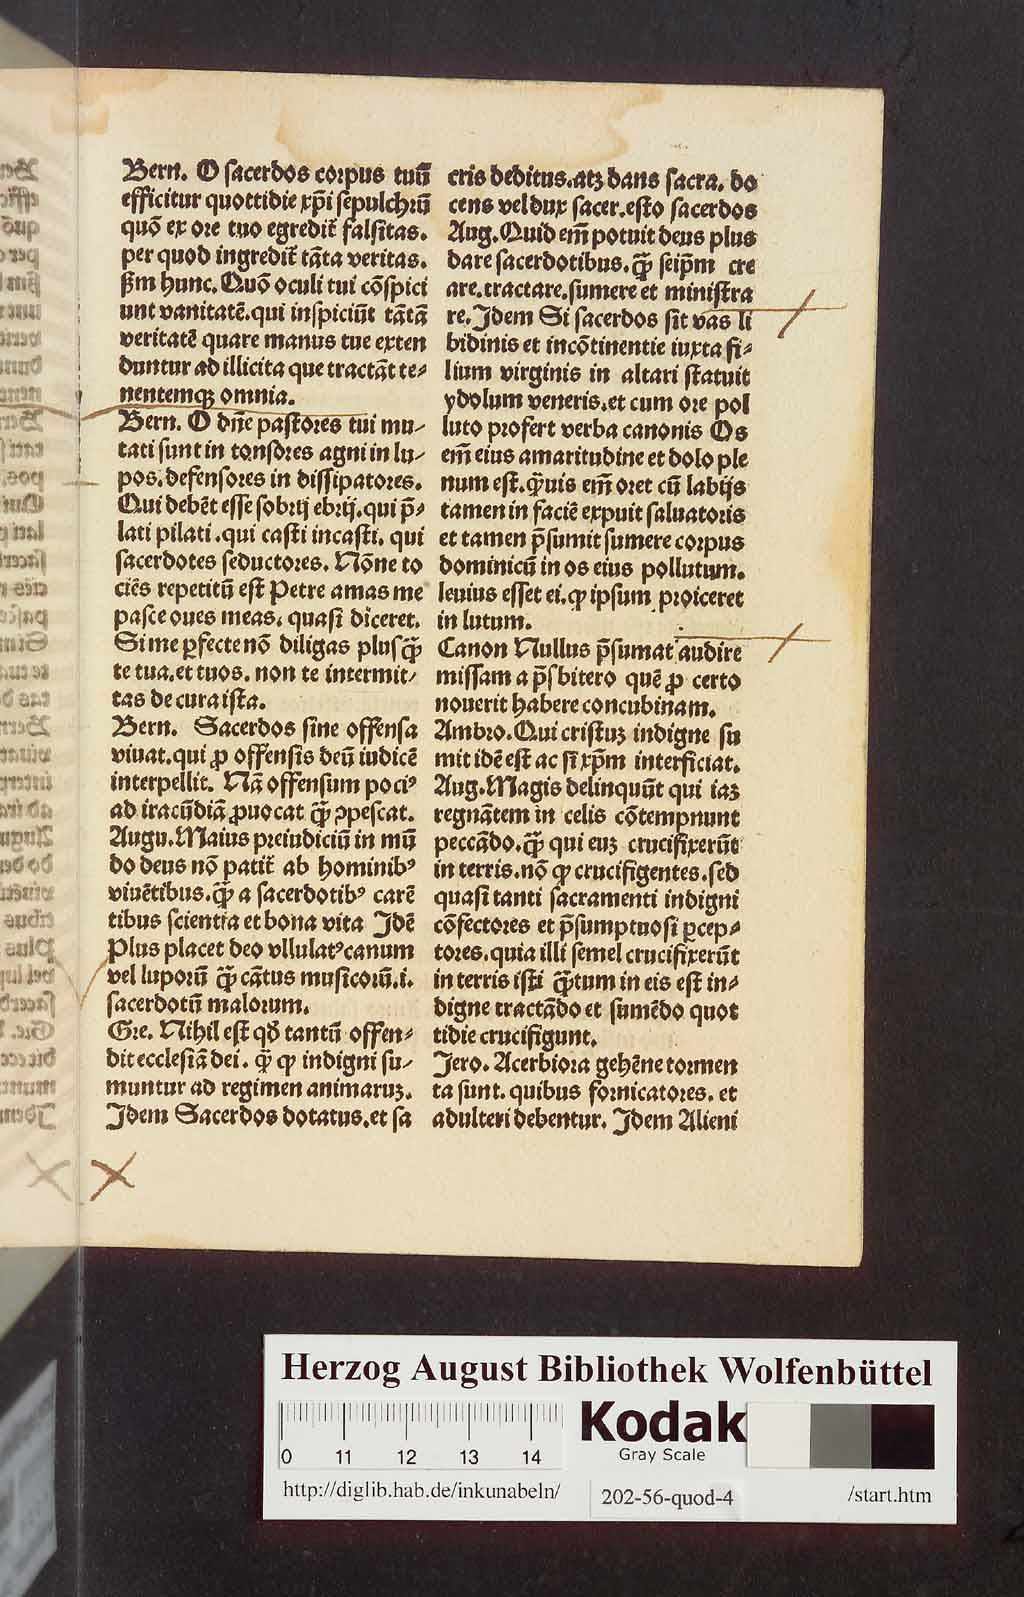 Bern. O sacerdos corpus tuū
efficitur quottidie xp̄i sepulchrū
quō ex ore tuo egredit᷑ falsitas.
per quod ingredit᷑ tāta veritas.
ẞm hunc. Quō oculi tui cōspici
unt vanitatē. qui inspiciūt tātā
veritatē quare manus tue exten
duntur ad illicita que tractāt te⸗
nentemqꝫ omnia.
Bern. O dn̄e pastores tui mu⸗
tati sunt in tonsores agni in lu⸗
pos. defensores in dissipatores.
Qui debēt esse sobrij ebrij. qui p̄⸗
lati pilati. qui casti incasti. qui
sacerdotes seductores. Nōne to
ciēs repetitū est Petre amas me
pasce oues meas. quasi diceret.
Si me ꝑfecte nō diligas plus q̄ꝫ
te tua. et tuos. non te intermit⸗
tas de cura ista.
Bern. Sacerdos sine offensa
viuat. qui ꝓ offensis deū iudicē
interpellit. Nā offensum poci⁹
ad iracūdiā ꝓuocat q̄ꝫ ꝯpescat.
Augu. Maius preiudiciū in mū
do deus nō patit᷑ ab hominib⁹
viuētibus. q̄ꝫ a sacerdotib⁹ carē
tibus scientia et bona vita Idē
Plus placet deo vllulat⁹ canum
vel luporū q̄ꝫ cātus musicorū. i.
sacerdotū malorum.
Gre. Nihil est qđ tantū offen⸗
dit ecclesiā dei. q̄ꝫ ꝙ indigni su⸗
muntur ad regimen animaruꝫ.
Idem Sacerdos dotatus. et sa
cris deditus. atꝫ dans sacra. do
cens vel dux sacer. esto sacerdos
Aug. Quid em̄ potuit deus plus
dare sacerdotibus. q̄ꝫ seip̄m cre
are. tractare. sumere et ministra
re. Idem Si sacerdos sit vas li
bidinis et incōtinentie iuxta fi⸗
lium virginis in altari statuit
ydolum veneris. et cum ore pol
luto profert verba canonis Os
em̄ eius amaritudine et dolo ple
num est. q̄ꝫuis em̄ oret cū labijs
tamen in faciē expuit saluatoris
et tamen p̄sumit sumere corpus
dominicū in os eius pollutum.
leuius esset ei. ꝙ ipsum proiceret
in lutum.
Canon Nullus p̄sumat audire
missam a p̄sbitero quē ꝓ certo
nouerit habere concubinam.
Ambro. Qui cristuꝫ indigne su
mit idē est ac si xp̄m interficiat.
Aug. Magis delinquūt qui iaꝫ
regnātem in celis cōtempnunt
peccādo. q̄ꝫ qui euꝫ crucifixerūt
in terris. nō ꝙ crucifigentes. sed
quasi tanti sacramenti indigni
cōfectores et p̄sumptuosi ꝑcep⸗
tores. quia illi semel crucifixerūt
in terris isti q̄ꝫtum in eis est in⸗
digne tractādo et sumēdo quot
tidie crucifigunt.
Jero. Acerbiora gehēne tormen
ta sunt. quibus fornicatores. et
adulteri debentur. Idem Alieni
Herzog August Bibliothek Wolfenbüttel
Kodak
Gray Scale
0 11 12 13 14
http://diglib.hab.de/inkunabeln/
202-56-quod-4
/start.htm